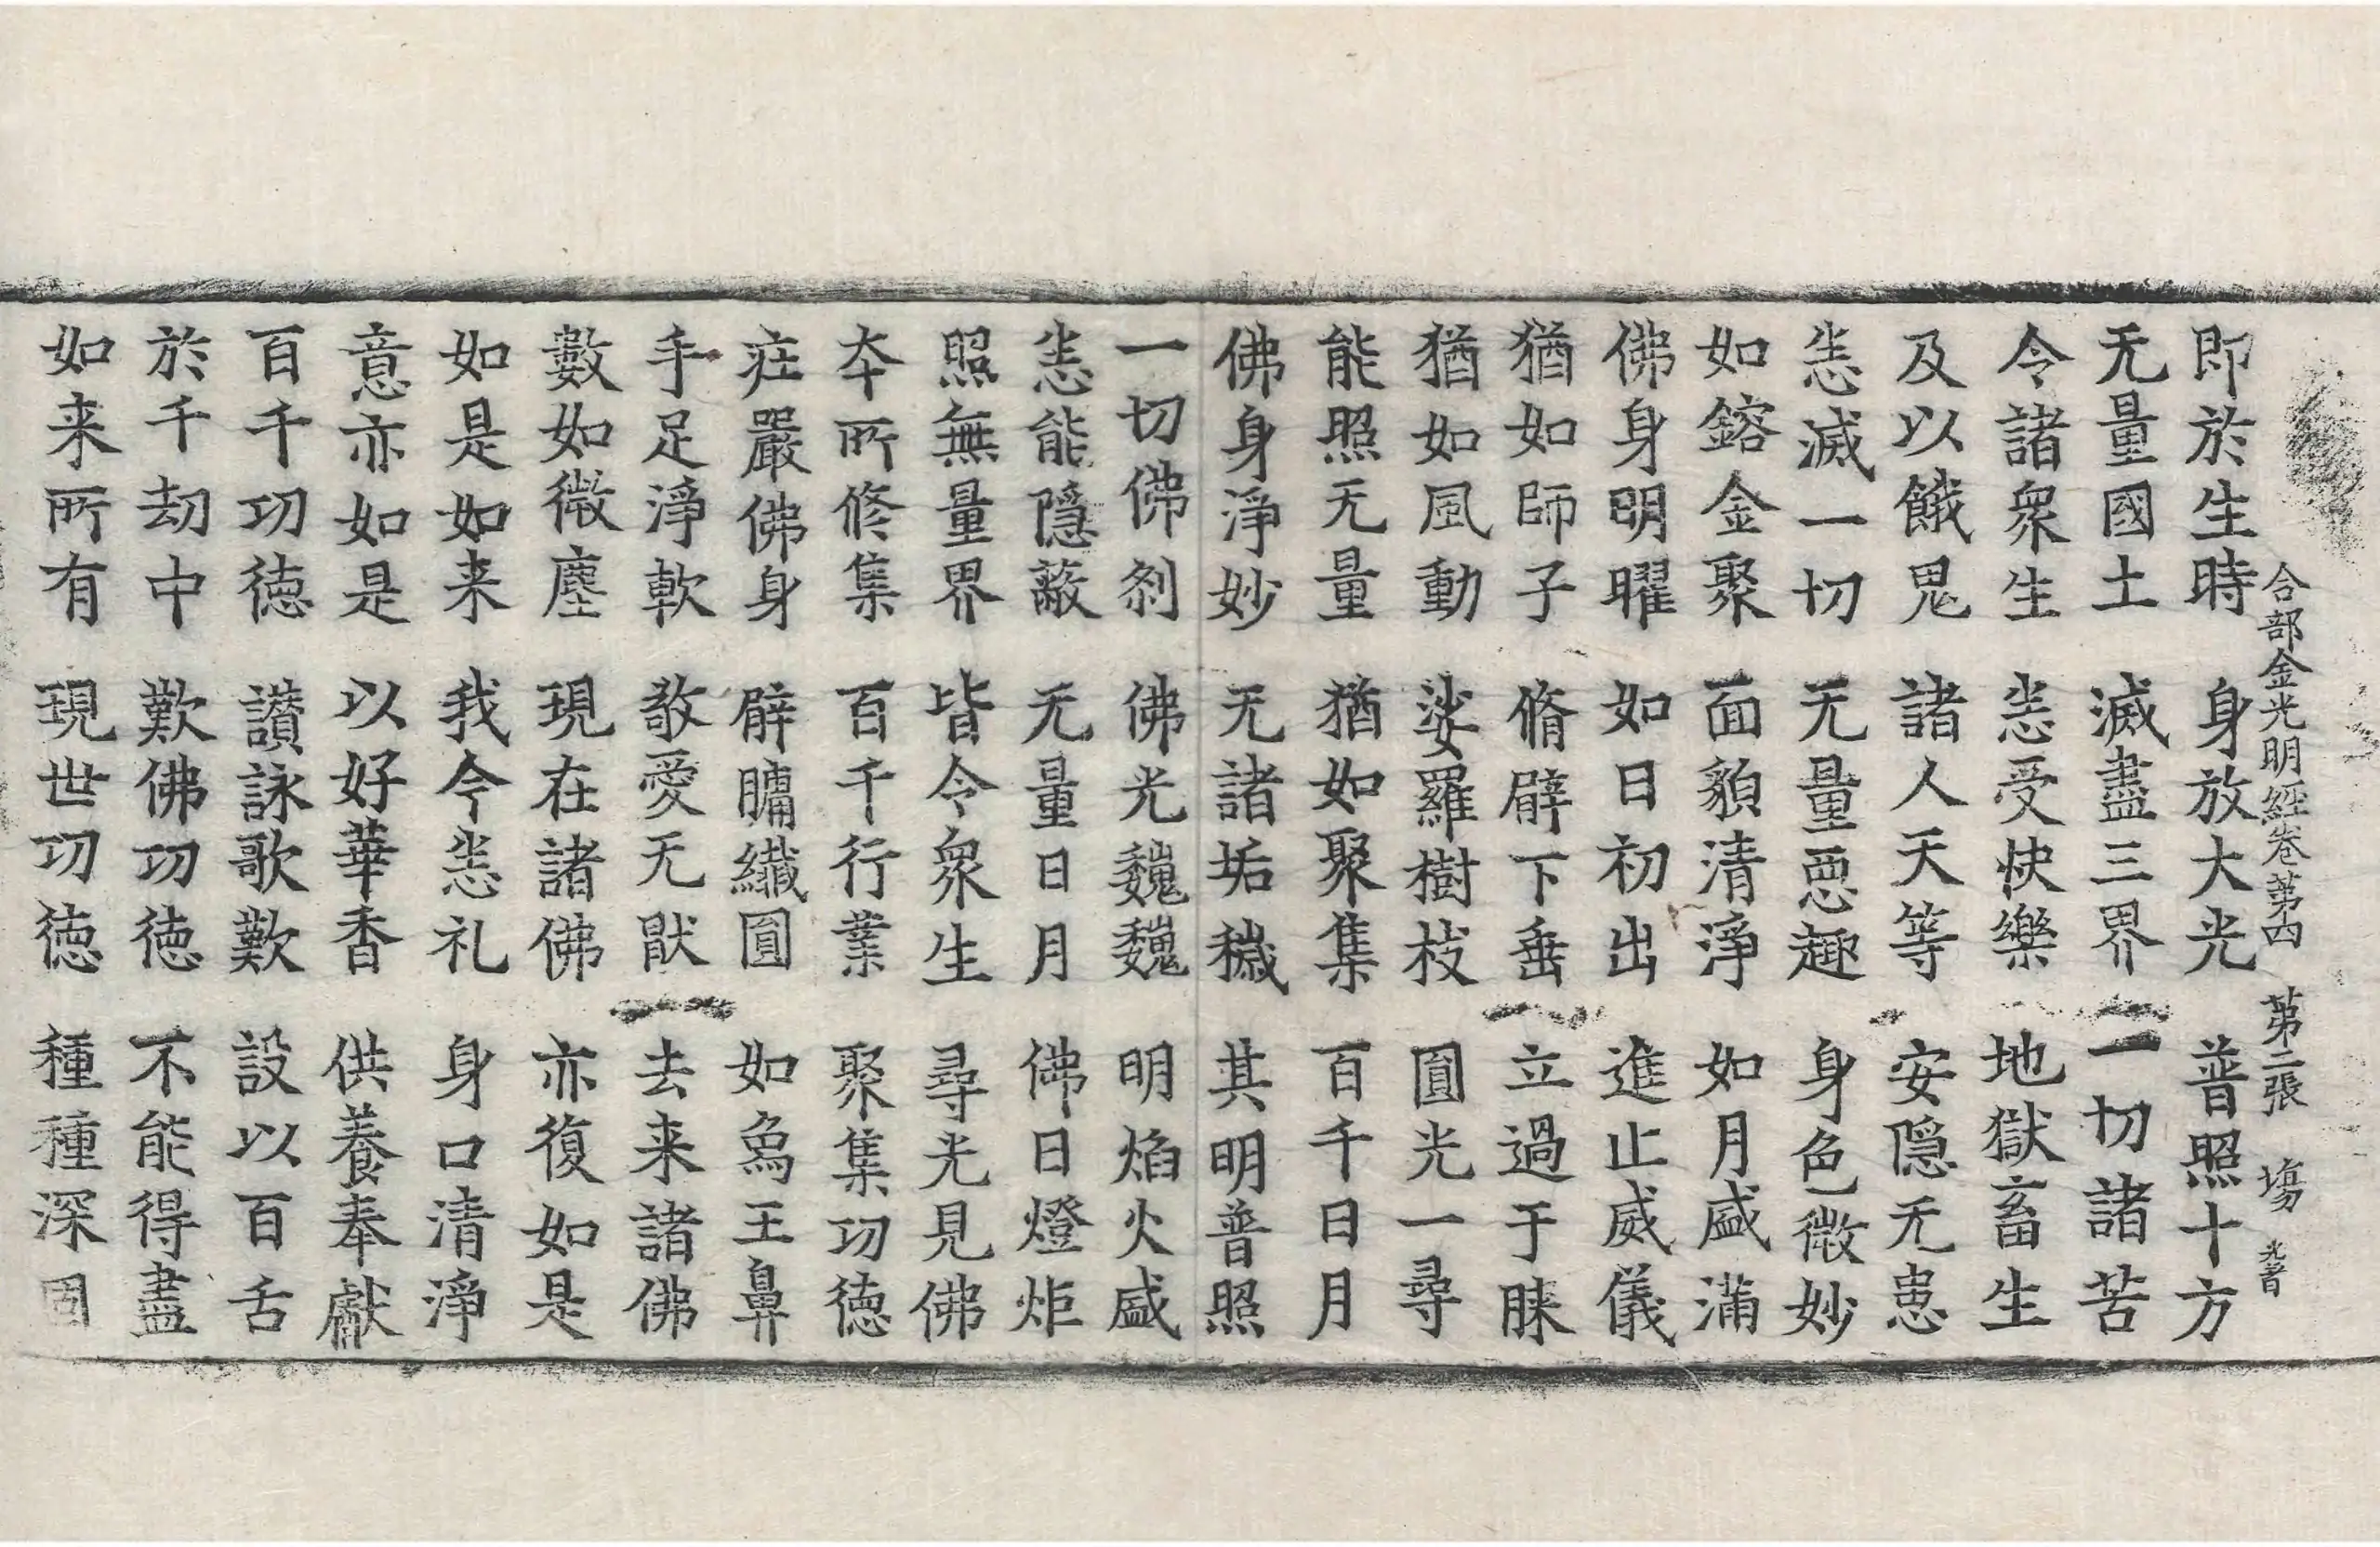 合部金光明經卷第四 第二張 塲
即於生時 身放大光 普照十方
无量國土 滅盡三界 一切諸苦
令諸衆生 恙受快樂 地獄畜生
及以餓鬼 諸人天等 安隱无患
恙滅一切 无量惡趣 身色微妙
如鎔金聚 面貌清淨 如月盛滿
佛身明曜 如日初出 進止威儀
猶如師子 脩臂下垂 立過于膝
猶如風動 娑羅樹枝 圓光一尋
能照无量 猶如聚集 百千日月
佛身淨妙 无諸垢穢 其明普照
一切佛刹 佛光巍巍 明焰火盛
恙能隱蔽 无量日月 佛日燈炬
照無量界 皆令衆生 尋光見佛
夲所修集 百千行業 聚集功德
庄嚴佛身 臂𦟛纖圓 如象王鼻
手足淨軟 敬愛无猒 去来諸佛
數如微塵 現在諸佛 亦復如是
如是如来 我今恙礼 身口清淨
意亦如是 以好華香 供養奉獻
百千功德 讃詠歌歎 設以百舌
於千劫中 歎佛功德 不能得盡
如来所有 現世功德 種種深固